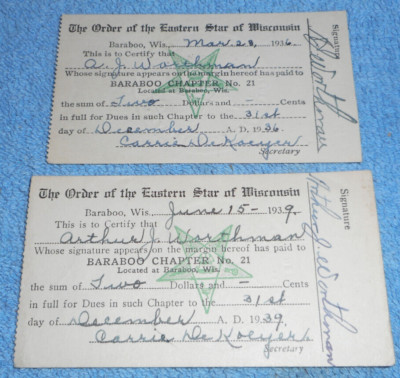 The Order of the Eastern Star of Wisconsin
Baraboo, Wis. Mar 28, 1936.
This is to Certify that
A. J. Worthman
Whose signature appears on the margin hereof has paid to
BARABOO CHAPTER No. 21
Located at Baraboo, Wis.
the sum of Two Dollars and - Cents
in full for Dues in such Chapter to the 31st
day of December A. D. 1936.
Carrie De Koeyer
Secretary
Signature
A J Worthman
The Order of the Eastern Star of Wisconsin
Baraboo, Wis. June 15 - 1939.
This is to Certify that
Arthur J. Worthman
Whose signature appears on the margin hereof has paid to
BARABOO CHAPTER No. 21
Located at Baraboo, Wis.
the sum of Two Dollars and - Cents
in full for Dues in such Chapter to the 31st
day of December A. D. 1939.
Carrie De Koeyer
Secretary
Signature
Arthur J Worthman